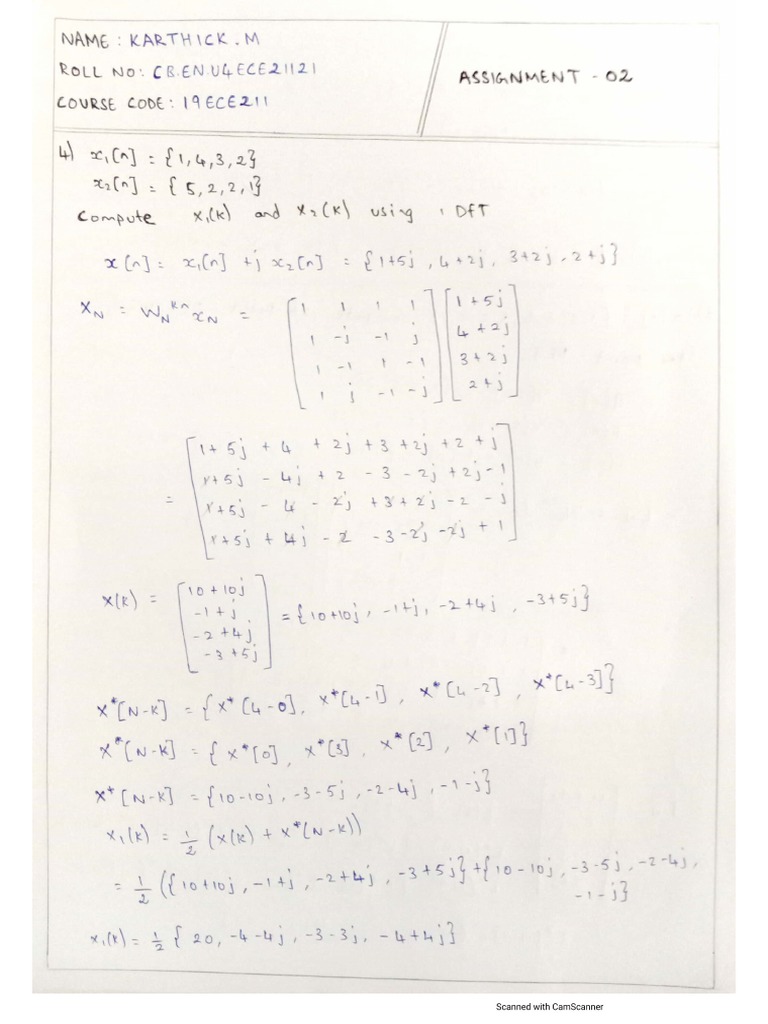 NAME : KARTHICK . M
ROLL NO : CB.EN.U4ECE21121
COURSE CODE : 19ECE211
ASSIGNMENT - 02
4) x₁[n] = {1,4,3,2}
x₂[n] = {5,2,2,1}
Compute X₁(k) and X₂(k) using 1 DFT
x[n] = x₁[n] + j x₂[n] = {1+5j , 4+2j, 3+2j, 2+j}
X_N = W_N^kn x_N = [1 1 1 1] [1+5j]
[1 -j -1 j] [4+2j]
[1 -1 1 -1] [3+2j]
[1 j -1 -j] [2+j]
[1+5j + 4 + 2j + 3 + 2j + 2 + j]
[1+5j - 4j + 2 - 3 - 2j + 2j - 1]
= [1+5j - 4 - 2j + 3 + 2j - 2 - j]
[1+5j + 4j - 2 - 3 - 2j - 2j + 1]
X(k) = [10+10j] = {10+10j, -1+j, -2+4j, -3+5j}
[-1+j]
[-2+4j]
[-3+5j]
X*[N-K] = {X*[4-0], X*[4-1], X*[4-2], X*[4-3]}
X*[N-K] = {X*[0], X*[3], X*[2], X*[1]}
X*[N-K] = {10-10j, -3-5j, -2-4j, -1-j}
X₁(k) = 1/2 (X(k) + X*(N-k))
= 1/2 ({10+10j, -1+j, -2+4j, -3+5j} + {10-10j, -3-5j, -2-4j,
-1-j}
X₁(k) = 1/2 {20, -4-4j, -3-3j, -4+4j}
Scanned with CamScanner